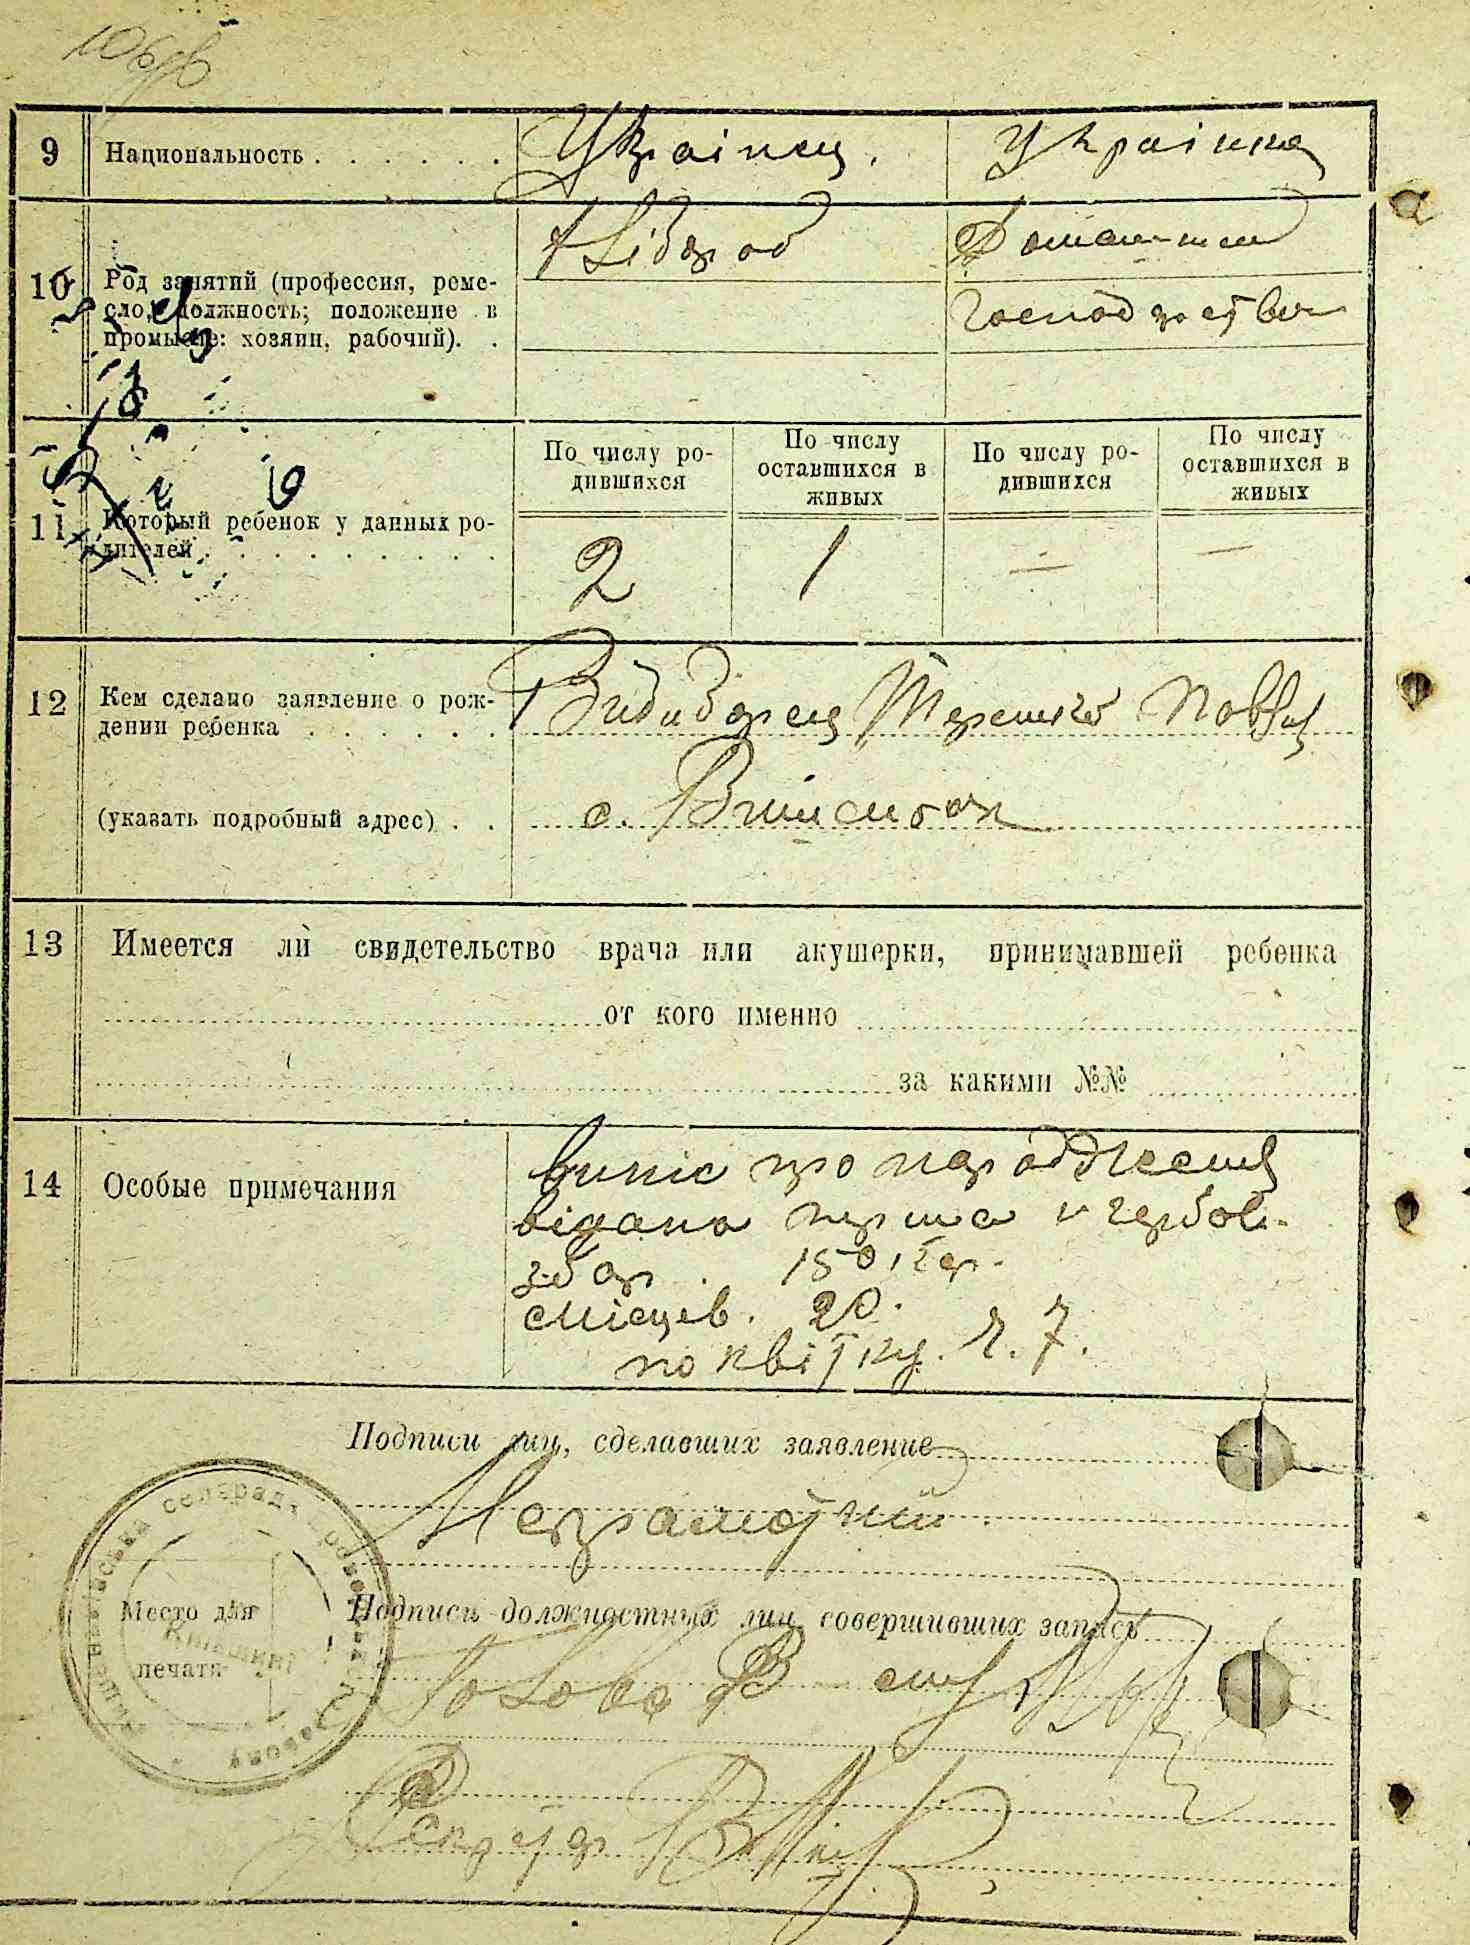 9 Национальность . . . . . . Українец. Українка
10 Род занятий (профессия, реме-
сло, должность; положение в
промысле: хозяин, рабочий). .
Хлібороб Домашнє
господарство
11 Который ребенок у данных ро-
дителей . . . . . . . . . .
По числу ро-
дившихся
По числу
оставшихся в
живых
По числу ро-
дившихся
По числу
оставшихся в
живых
2 1 — —
12 Кем сделано заявление о рож-
дении ребенка . . . . . .
(указать подробный адрес) . .
с.
13 Имеется ли свидетельство врача или акушерки, принимавшей ребенка
от кого именно
за какими №№
14 Особые примечания
випис про народження
видана перша и гербов.
збор. 1 50 кар.
місцев. 20.
по квітку. ч. 7.
Подписи лиц, сделавших заявление
Неграмотний
Подписи должностных лиц, совершивших запись
Место для
печати
Голова В
Секретар